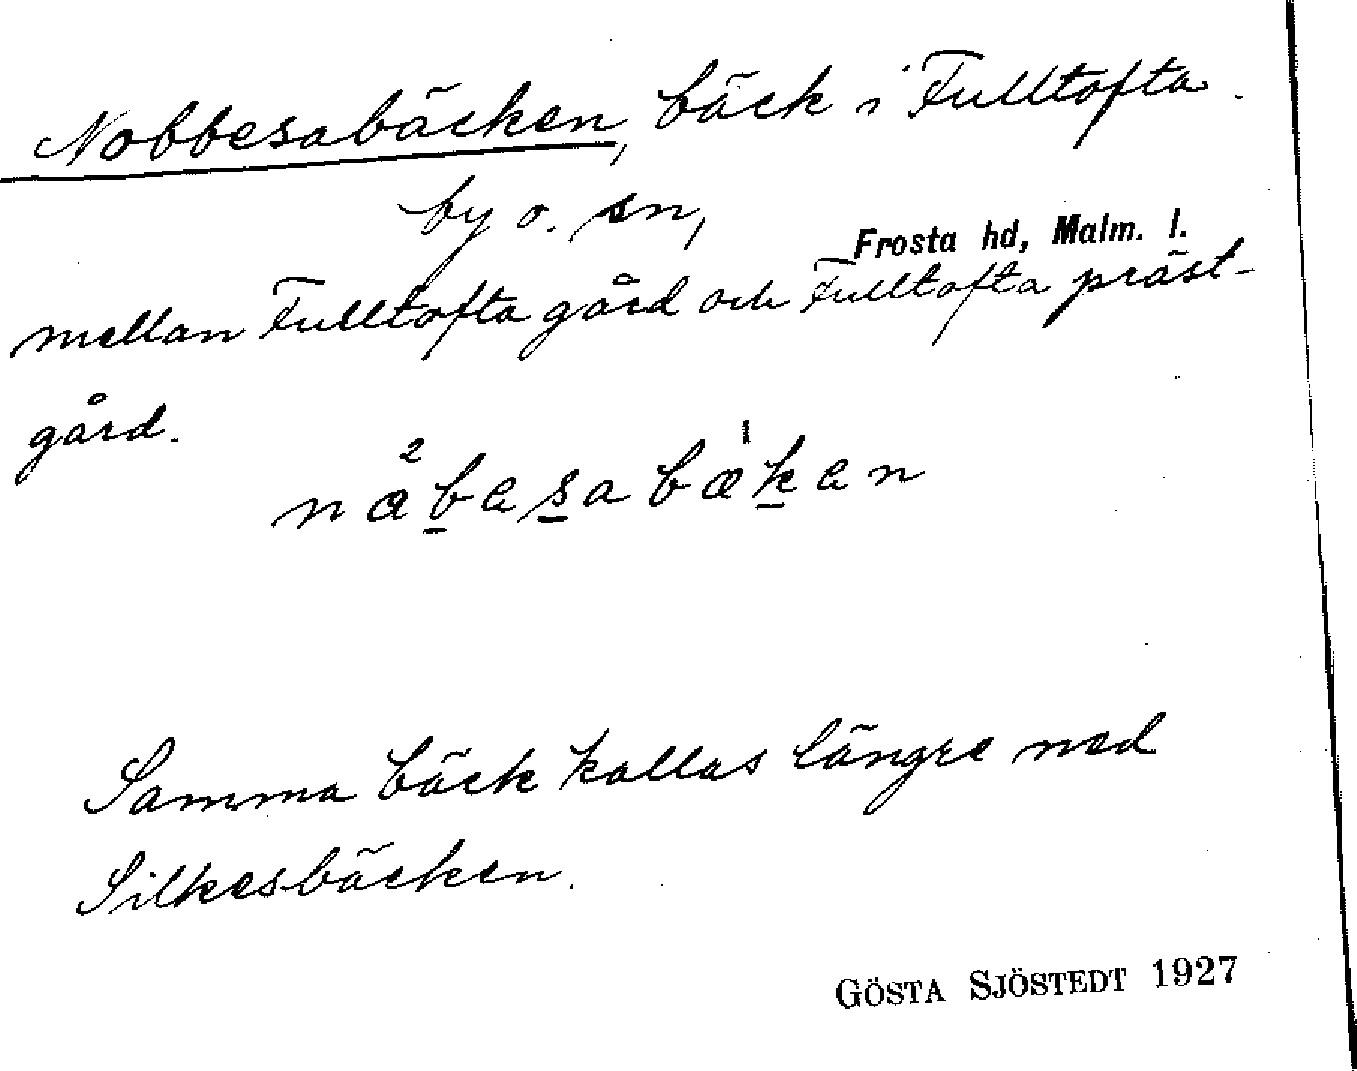 Nobbesabäcken, bäck i Fulltofta
by o. sn,
Frosta hd, Malm. l.
mellan Fulltofta gård och Fulltofta präst-
gård.
Samma bäck kallas längre ned
Silkesbäcken.
GÖSTA SJÖSTEDT 1927